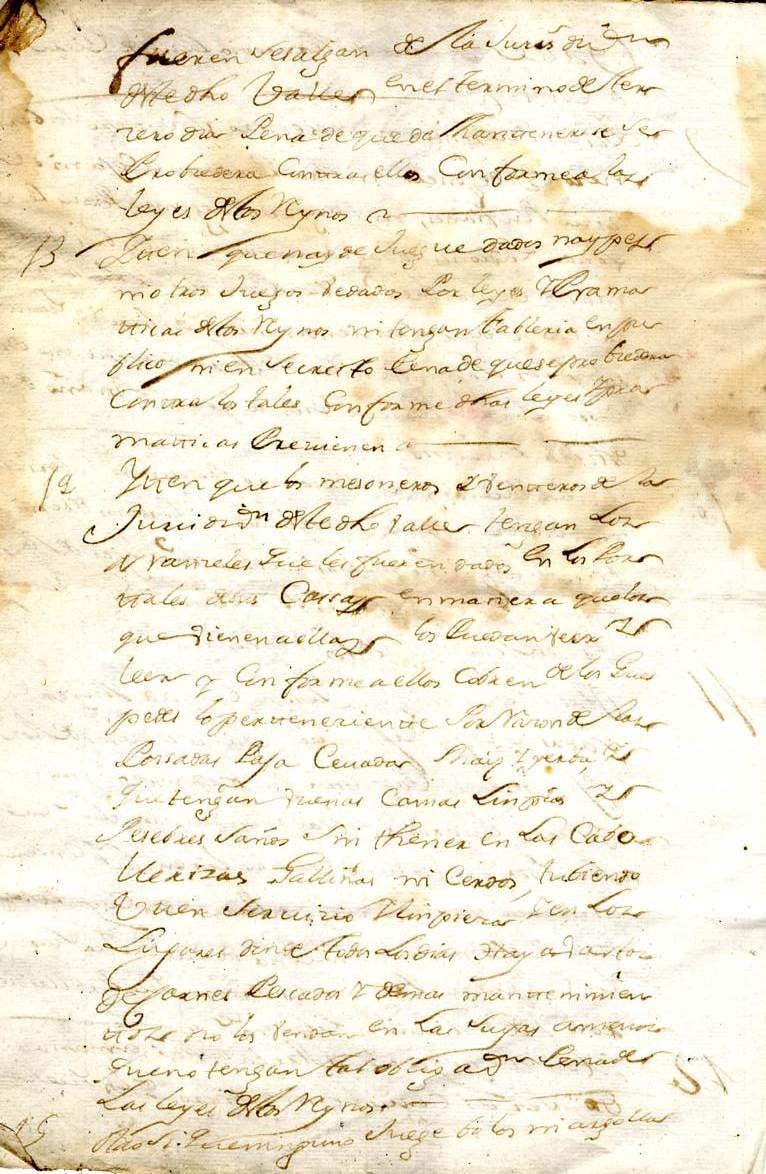 fueren se salgan de la Jurisdizⁿ
deste dho Valle en el termino de ter
zero dia Pena de que de Mantenerse se
Probeera Contra ellos Conforme a las
leyes destos Rynos
13 Yten que nay de Juegue dados naypes
ni otros Juegos vedados Por leyes Y Prama
tticas destos Rynos ni tengan tableria en pu
blico ni en secretto Pena de que se probeera
Contra los tales Conforme dhas leyes Y prac
matticas Previenen
14 Yten que los mesoneros Y Venteros de la
Jurisdizⁿ deste dho Valle tengan los
Aranzeles que les fueren dados En los Por
ttales de sus Cassas en manera que los
que vienen a ellas los Puedan veer Y
leer y Conforme a ellos Cobren de los Gues
pedes lo perteneziente Por Razon de las
Possadas Paja Cevada Maiz Y yerba Y
que tengan vuenas Camas Limpias Y
Pesebres sanos sin thener en las Cava
llerizas Gallinas ni Cerdos, tubiendo
Vuen Servizio Y limpieza Y en los
Lugares donde todos los dias Hay abastos
de Carnes Pescados Y demas mantenimien
ttos no los vendan en las suyas a menos
que no tengan tal obligazⁿ Pena de
Las leyes destos Rynos
15 Otro Si que ninguno Juege bolos ni argollas